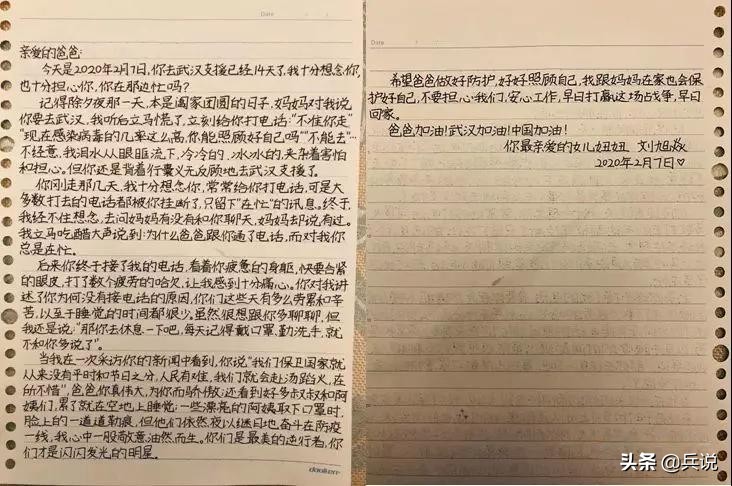 Date
亲爱的爸爸:
今天是2020年2月7日,你去武汉支援已经14天了,我十分想念你,
也十分担心你,你在那边忙吗?
记得除夕夜那一天,本是阖家团圆的日子,妈妈对我说
你要去武汉,我听后立马慌了,立刻给你打电话:“不准你走”
“现在感染病毒的几率这么高,你能照顾好自己吗”“不能去”…
不经意,我泪水从眼眶流下,冷冷的,冰冰的,夹杂着害怕
和担心。但你还是背着行囊义无反顾地去武汉支援了。
你刚走那几天,我十分想念你,常常给你打电话,可是大
多数打去的电话都被你挂断了,只留下“在忙”的讯息。终于,
我经不住想念,去问妈妈有没有和你聊天,妈妈却说有过。
我立马吃醋大声说到:为什么爸爸跟你通了电话,而对我你
总是在忙。
后来你终于接了我的电话,看着你疲惫的身躯,快要合紧
的眼皮,打了数个疲劳的哈欠,让我感到十分痛心。你对我讲
述了你为何没有接电话的原因,你们这些天有多么劳累和辛
苦,以至于睡觉的时间都很少。虽然很想跟你多聊聊,但
我还是说:“那你去休息一下吧,每天记得戴口罩,勤洗手,就
不和你多说了”。
当我在一次采访你的新闻中看到,你说“我们保卫国家就
从来没有平时和节日之分,人民有难,我们就会赴汤蹈火,在
所不惜”,爸爸你真伟大,为你而骄傲;还看到好多叔叔和阿
姨们,累了就在空地上睡觉;一些漂亮的阿姨取下口罩时,
脸上的一道道勒痕,但他们依然夜以继日地奋斗在防疫
一线,我心中一股敬意油然而生。你们是最美的逆行者,你
们才是闪闪发光的明星。
Date
希望爸爸做好防护,好好照顾自己,我跟妈妈在家也会保
护好自己,不要担心我们,安心工作,早日打赢这场战争,早日
回家。
爸爸加油!武汉加油!中国加油!
你最亲爱的女儿妞妞 刘旭焱
2020年2月7日♡
头条 @兵说